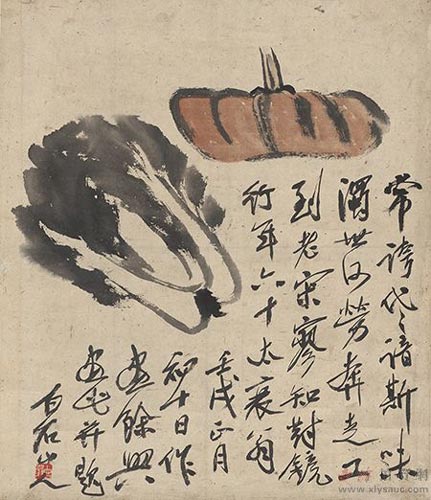 常誇代〻諳斯味
濁世何勞奔走工
到老寂寥知對鏡
行年六十太衰翁
壬戌正月
初十日作
畫餘興
畫此并題
白石山人
www.xlysauc.com